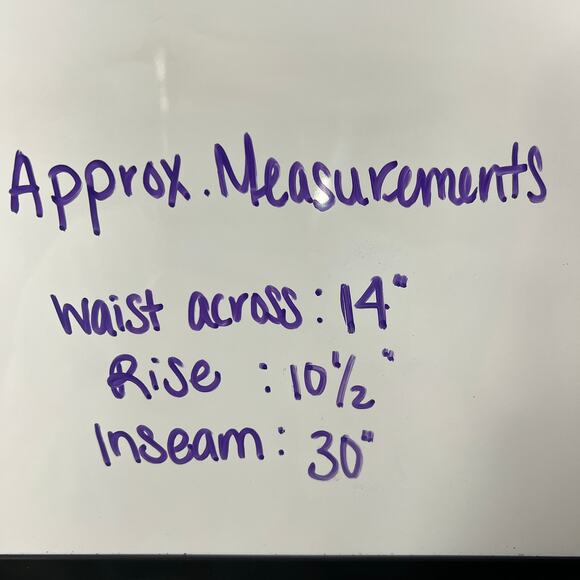 Approx. Measurements
Waist across: 14"
Rise : 10 1/2"
Inseam: 30"